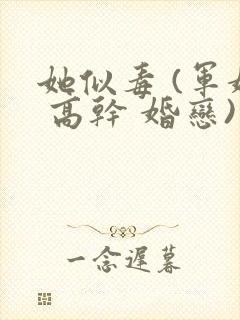 她似毒 (軍
高幹 婚戀)
一念遲暮